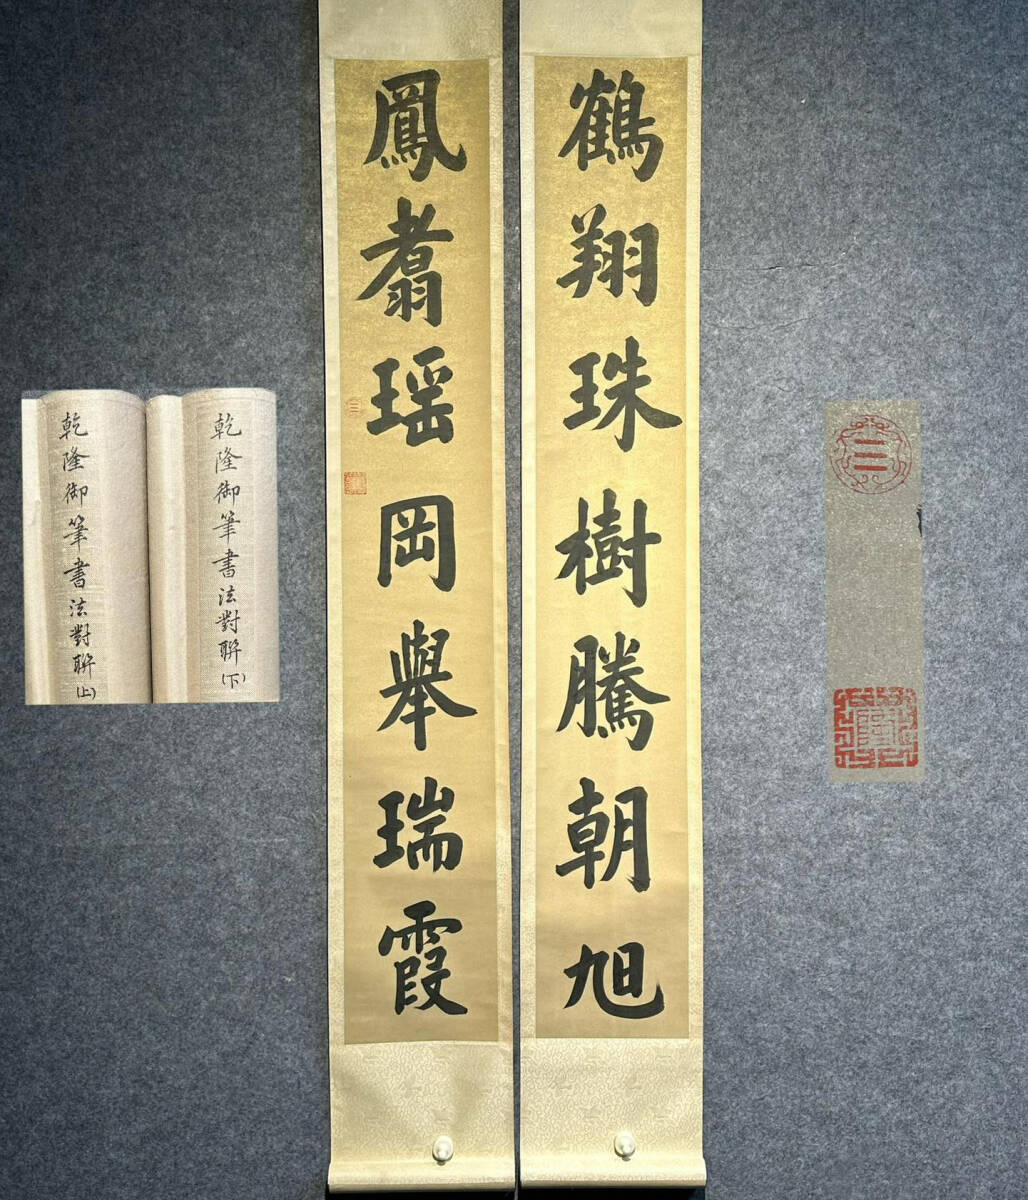 鶴翔珠樹騰朝旭
鳳翥瑶岡舉瑞霞
乾隆御筆書法對聯(下)
乾隆御筆書法對聯(上)